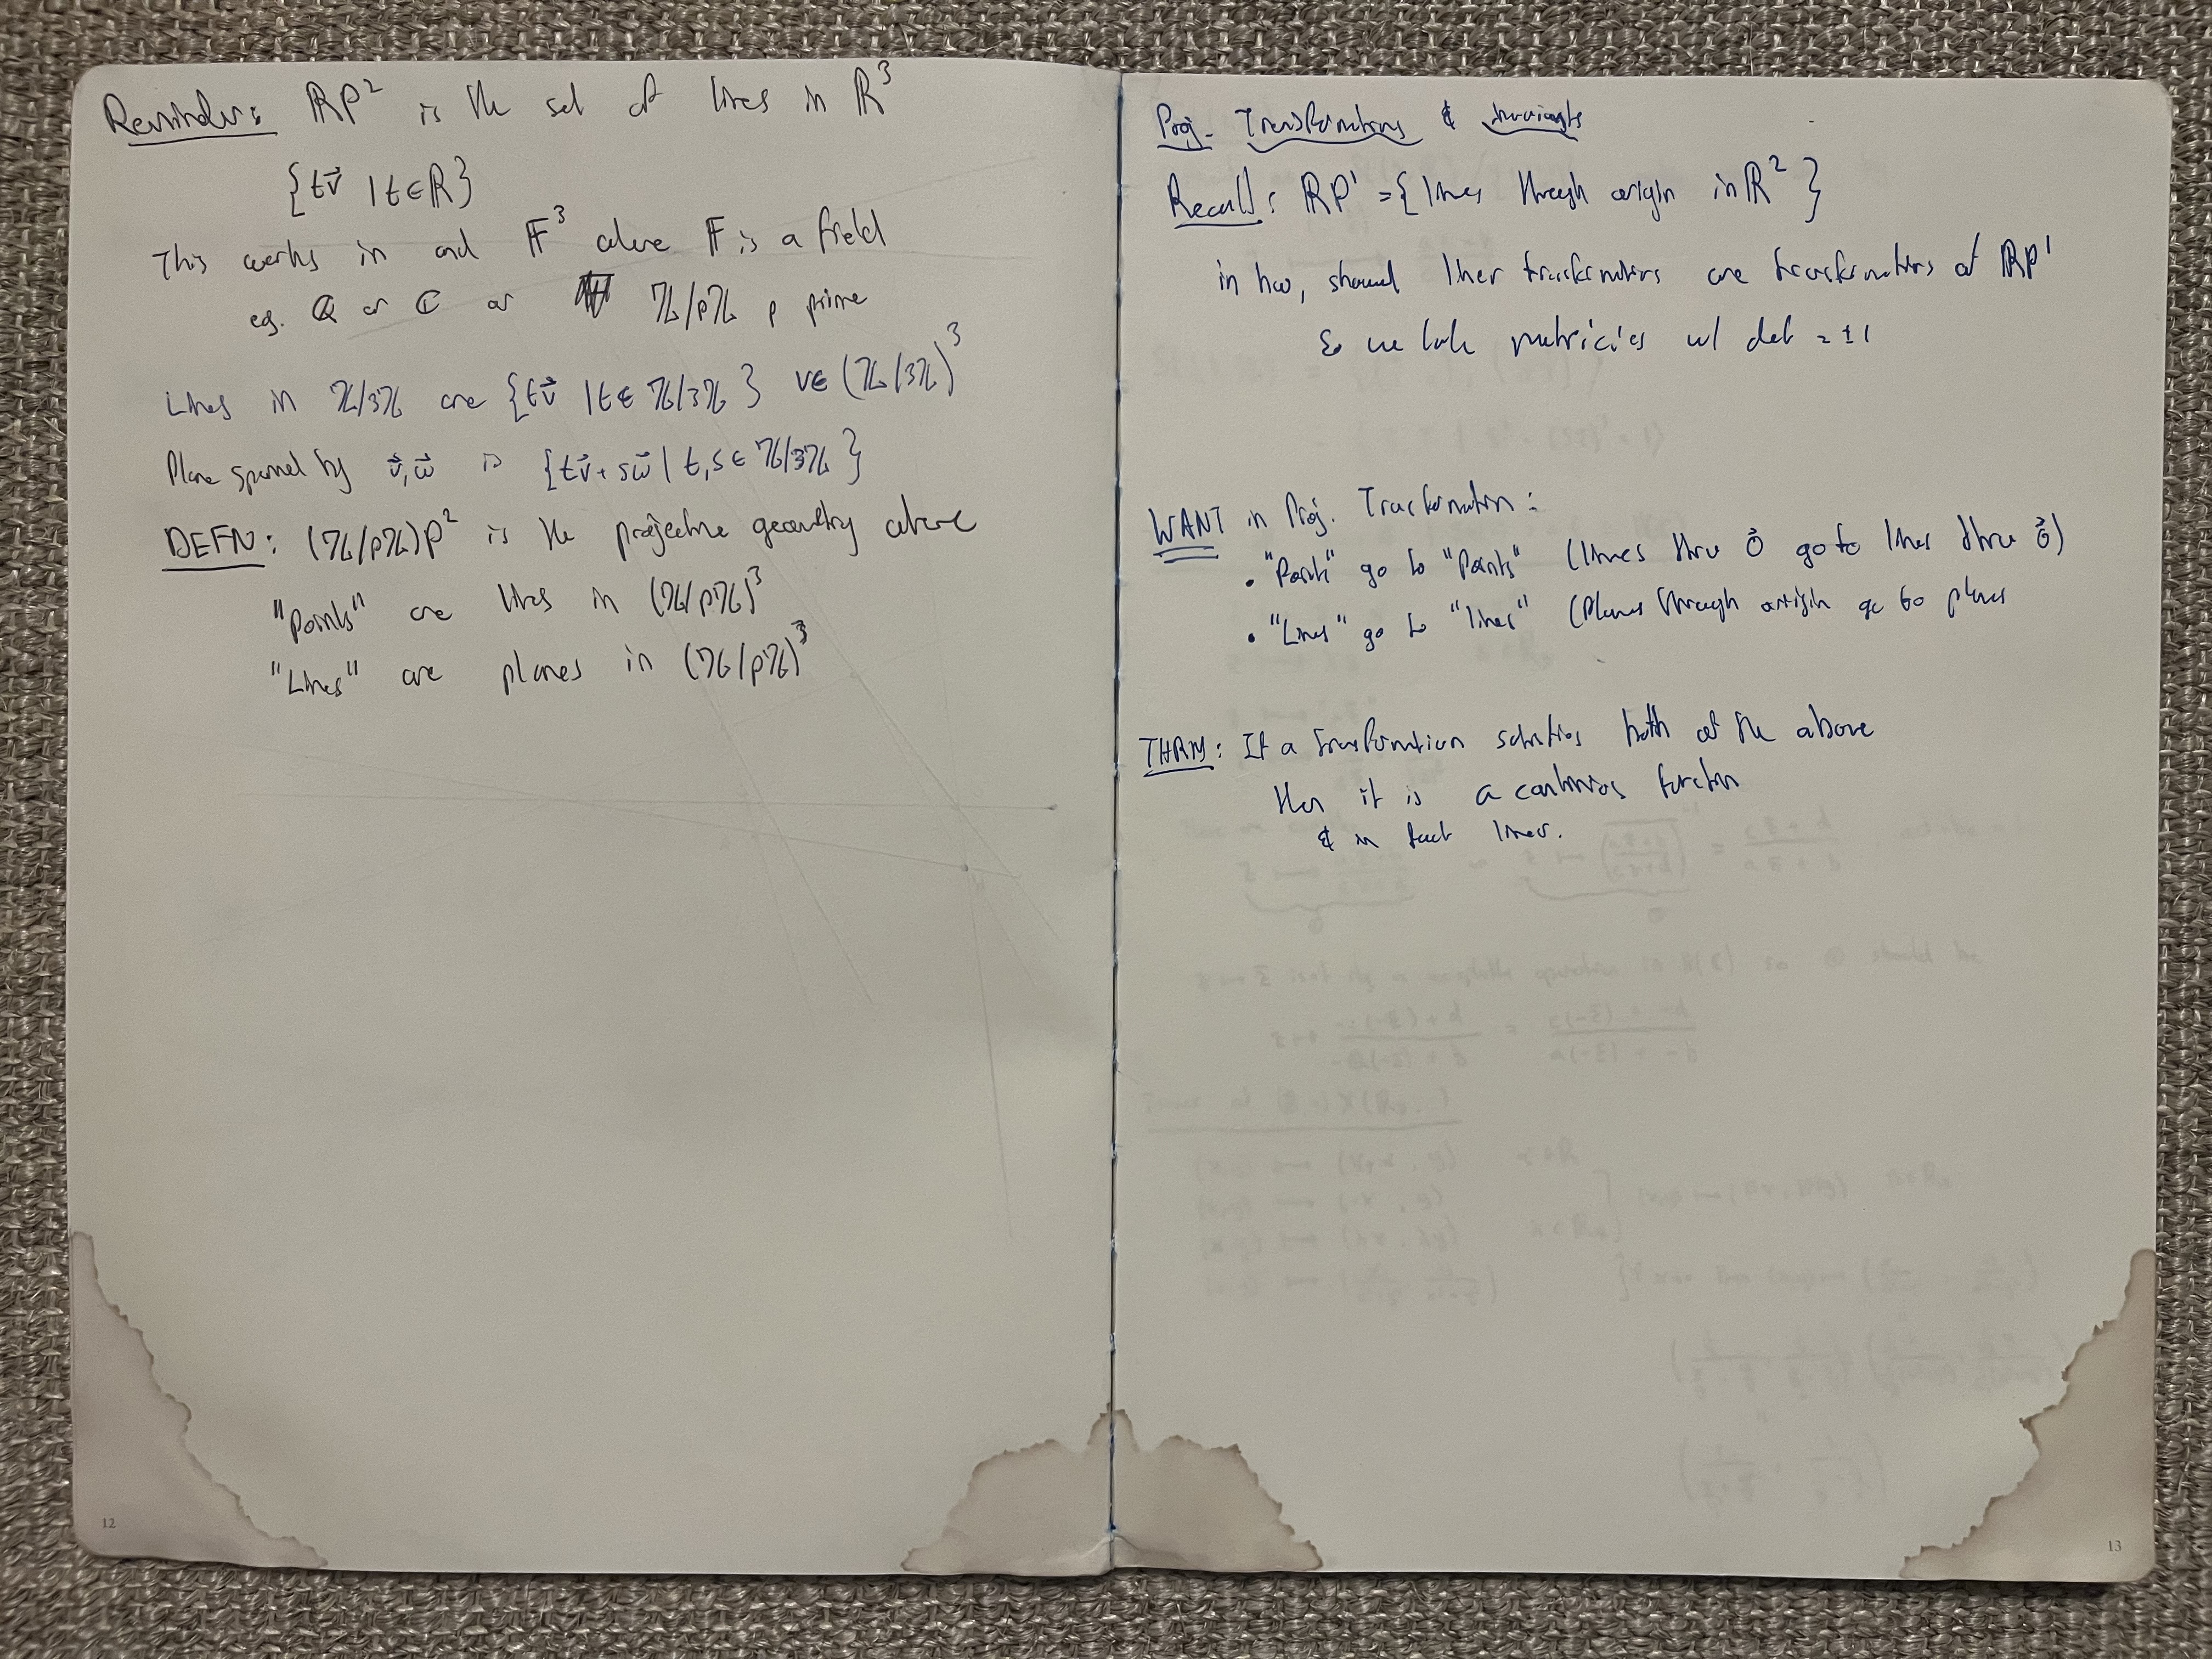 Reminder: RP² is the set of lines in R³
{tv⃗ | t∈R}
This works in and F³ where F is a field
eg. Q or C or Z/pZ p prime
Lines in Z/3Z are {tv⃗ | t∈ Z/3Z} v∈(Z/3Z)³
Plane spanned by v⃗,w⃗ is {tv⃗ + sw⃗ | t,s∈ Z/3Z}
DEFN: (Z/pZ)P² is the projective geometry where
"points" are lines in (Z/pZ)³
"Lines" are planes in (Z/pZ)³
12
Proj. Transformations & invariants
Recall: RP¹ = {lines through origin in R²}
in hw, showed linear transformations are transformations of RP¹
So we look matricies w/ det = ±1
WANT in Proj. Transformation:
• "Points" go to "Points" (lines thru 0⃗ go to lines thru 0⃗)
• "Lines" go to "lines" (planes through origin go to planes
THRM: If a transformation satisfies both of the above
then it is a continuous function
& in fact linear.
13